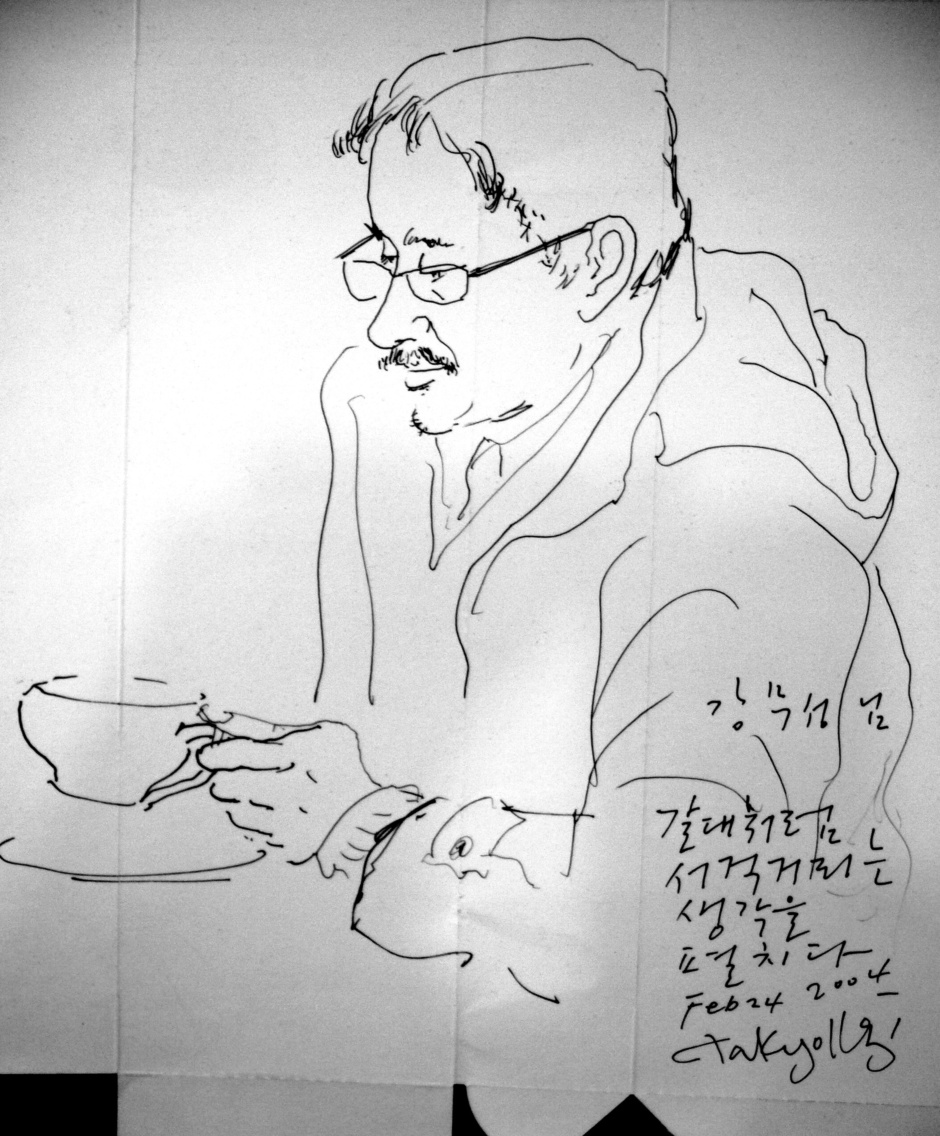 강무성 님
갈대처럼
서걱거리는
생각을
펼치다
Feb 24 2004